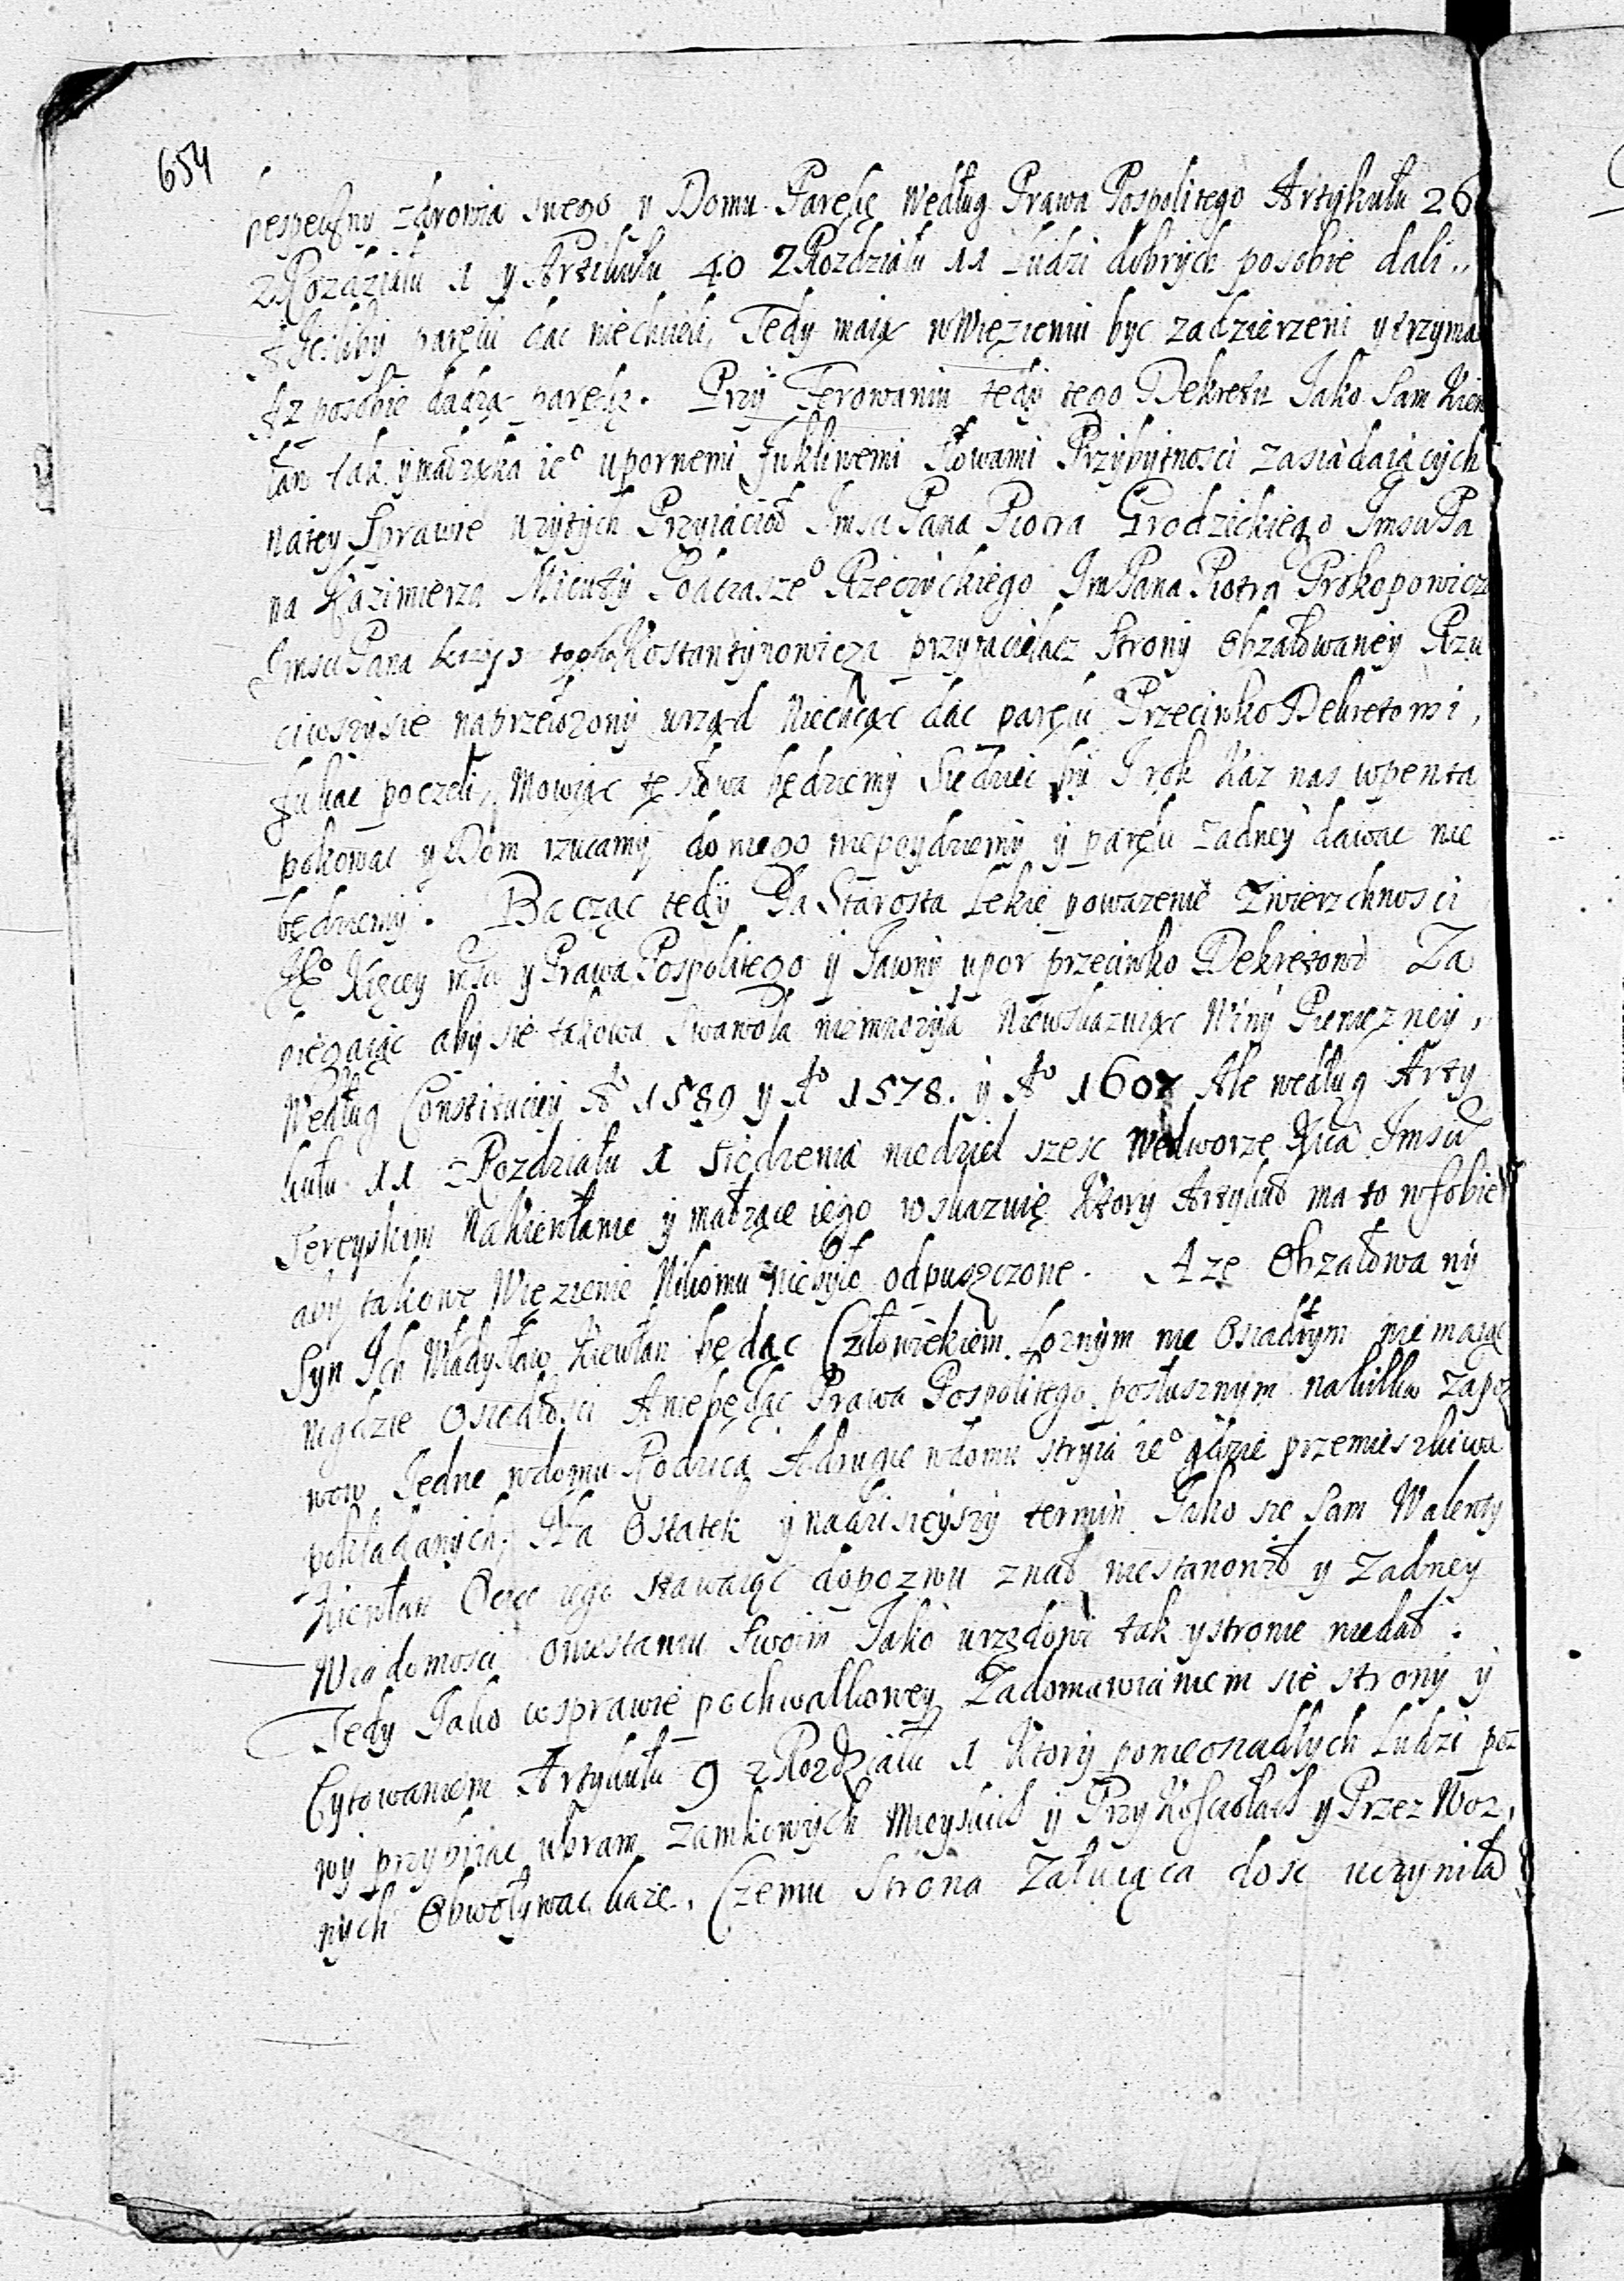 654
bespeczny zdrowia swego y Domu Parękę według Prawa Pospolitego Artykułu 26
z Rozdziału 1 y Artikułu 40 z Rozdziału 11 Ludzi dobrych posobie dali..
A Jesliby paręki dac niechcieli, Tedy maią w Więzieniu byc zadzierzeni y trzyma
Az posobie dadzą parękę. Przy Ferowaniu tedy tego Dekretu Jako Sam Kiew
łan tak y małząka ieo upornemi fukliwemi słowami Przybytnosci zasiadaiących
natey Sprawie uzytych Przyiacioł Jmsci Pana Piotra Grodzickiego Jmsci Pa
na Kazimierza Micuty Podczaszeo Rzeczyckiego Jm Pana Piotra Prokopowicza
Jmsci Pana Krzysztopha Kostantynowicza przyiacielacz Strony obzałowaney Rzu
ciwszysie naprzełozony urząd Niechcąc dac paręki Przeciwko Dekretowi,
fukac poczeli, Mowiąc te słowa będziemy Siedziec by J rok Kaz nas wpenta
pokowac y Dom rzucamy do niego niepoydziemy y paręki zadney dawac nie
będziemy. Bacząc tedy Ja Starosta Lekie powazenie Zwierzchnosci
Jeo Xięcey msci y Prawa Pospolitego y Jawny upor przeciwko Dekretowi Za
biegaiąc aby sie takowa Swawola niemnozyła Niewskazuiąc Winy Pieniężney,
Według Constituciey Ao 1589 y Ao 1578. y Ao 1607 Ale według Arty
kułu 11 z Rozdziału 1 siedzenia niedziel szesc wedworze Xcia Jmsci
Jereyskim Na Kiewłanie y małzące iego wskazuię Ktory Artykuł ma to w sobie
aby takowe Więzienie Nikomu nie było odpuszczone. A ze Obzałowany
Syn Ich Władysław Kiewłan będąc Człowiekiem loznym nie Osiadłym nie maiąc
nigdzie Osiadłosci A niebędąc Prawa Pospolitego posłusznym na kilku zapoz
wow Jedne wdomu Rodzica A drugie wdomu stryia ieo gdzie przemieszkiwa
pokładanych, Na Ostatek y na dzisieyszy termin Jako sie Sam Walenty
Kiewłan Ociec iego stawaiąc dopozwu znał niestanowił y Zadney
Wiadomosci oniestaniu swoim Jako urzędowi tak y stronie niedał.
Tedy Jako wsprawie pochwałkowey Zadomawianiem sie strony y
Cytowaniem Artykułu 9 z Rozdziału 1 Ktory ponieosiadłych Ludzi poz
wy przybiiac ubram zamkowych Mieyskich y Przy Kosciołach y Przez Woz,
nych Obwoływac kaze. Czemu Strona Załuiąca dosc uczyniła